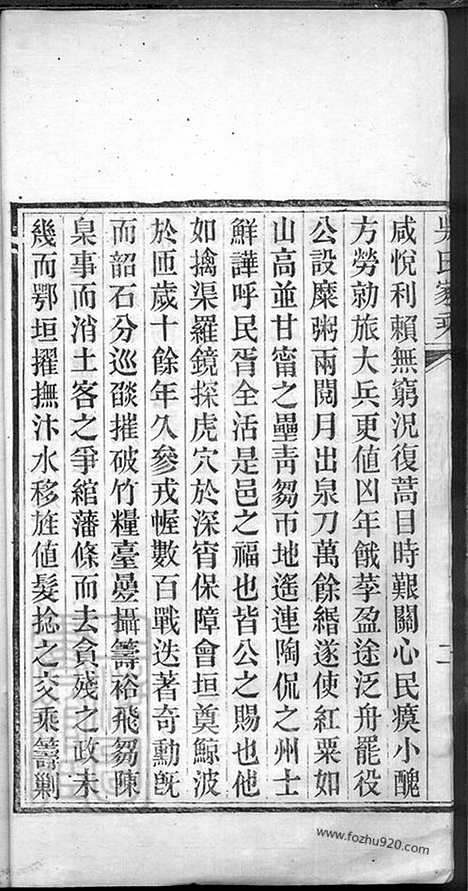 咸悅利賴無窮況復蒿目時艱關心民瘼小醜
方勞勍旅大兵更値凶年餓莩盈途泛舟罷役
公設糜粥兩閱月出泉刀萬餘緡遂使紅粟如
山高並甘甯之壘靑芻帀地遙連陶侃之州士
鮮譁呼民胥全活是邑之福也皆公之賜也他
如擒渠羅鏡探虎穴於深宵保障會垣奠鯨波
於匝歲十餘年久參戎幄數百戰迭著奇勳旣
而韶石分巡燄摧破竹糧臺㬅攝籌裕飛芻陳
臬事而消土客之爭綰藩條而去貪殘之政未
幾而鄂垣擢撫汴水移旌値髮捻之交乘籌剿
吳氏家乘
二
www.fozhu920.com